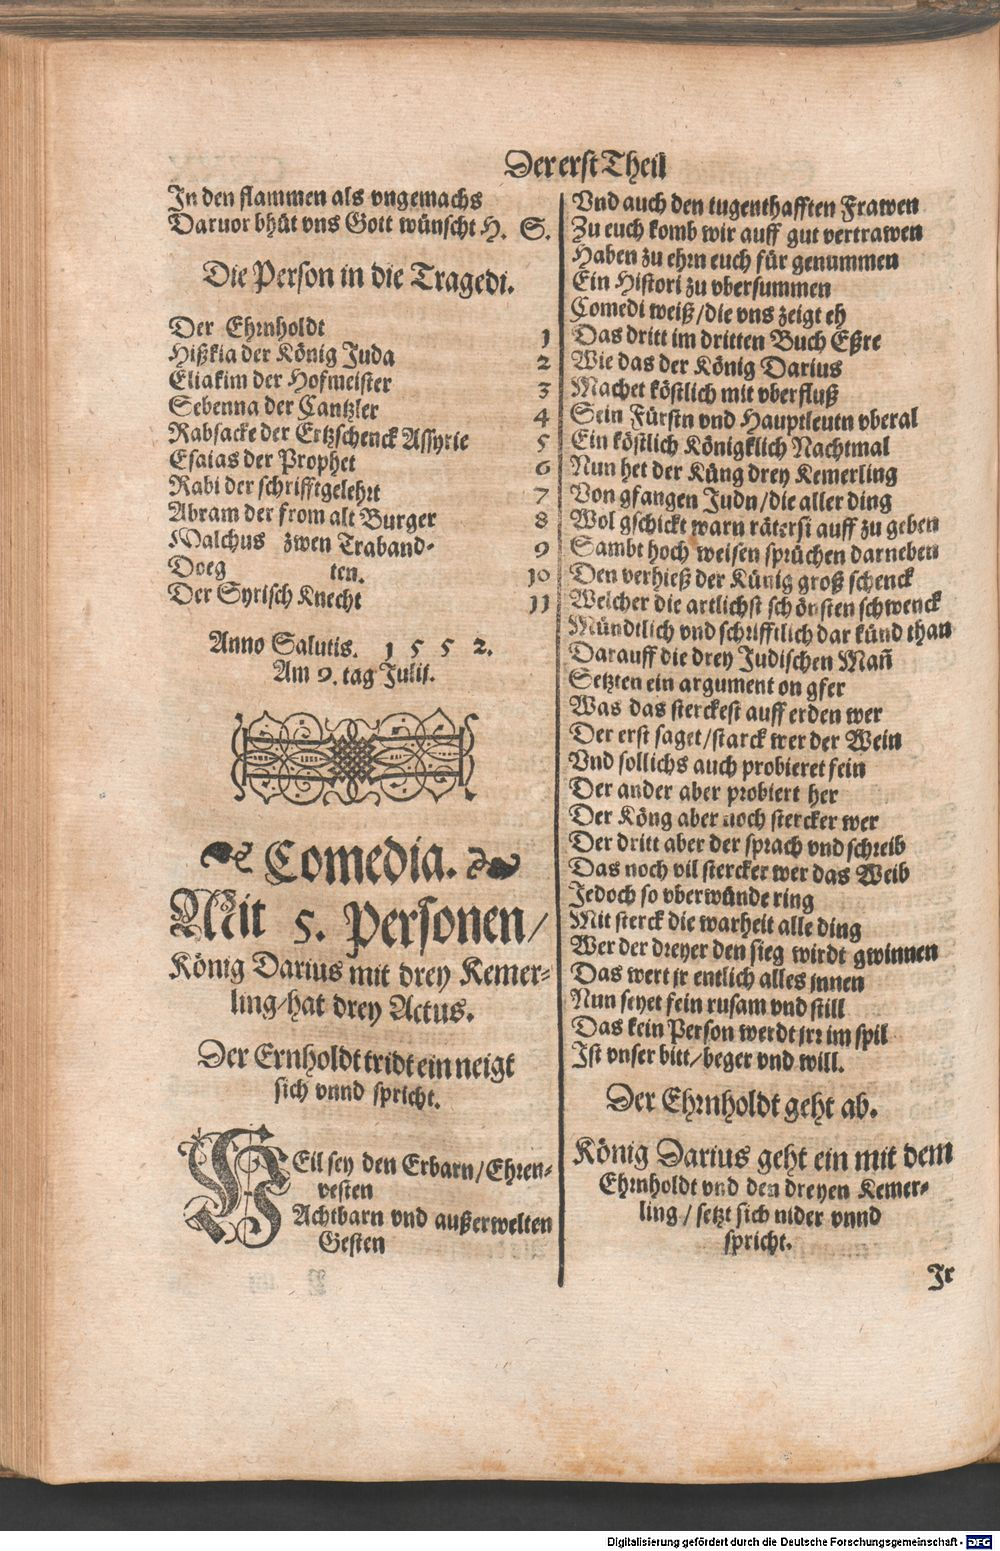 Der erst Theil
In den flammen als vngemachs
Daruor bhüt vns Gott wünscht H. S.
Die Person in die Tragedi.
Der Ehrnholdt 1
Hißkia der König Juda 2
Eliakim der Hofmeister 3
Sebenna der Cantzler 4
Rabsacke der Ertzschenck Assyrie 5
Esaias der Prophet 6
Rabi der schrifftgelehrt 7
Abram der from alt Burger 8
Malchus zwen Traband- 9
Doeg ten. 10
Der Syrisch Knecht 11
Anno Salutis. 1 5 5 2.
Am 9. tag Julij.
Comedia.
Mit 5. Personen/
König Darius mit drey Kemer-
ling/hat drey Actus.
Der Ernholdt tridt ein neigt
sich vnnd spricht.
HEil sey den Erbarn/Ehren-
vesten
Achtbarn vnd außerwelten
Gesten
Vnd auch den tugenthafften Frawen
Zu euch komb wir auff gut vertrawen
Haben zu ehrn euch für genummen
Ein Histori zu vbersummen
Comedi weiß/die vns zeigt eh
Das dritt im dritten Buch Eßre
Wie das der König Darius
Machet köstlich mit vberfluß
Sein Fürstn vnd Hauptleutn vberal
Ein köstlich Königklich Nachtmal
Nun het der Küng drey Kemerling
Von gfangen Judn/die aller ding
Wol gschickt warn rätersi auff zu geben
Sambt hoch weisen sprüchen darneben
Den verhieß der Künig groß schenck
Welcher die artlichst schönsten schwenck
Mündtlich vnd schrifftlich dar künd than
Darauff die drey Judischen Mañ
Setzten ein argument on gfer
Was das sterckest auff erden wer
Der erst saget/starck wer der Wein
Vnd sollichs auch probieret fein
Der ander aber probiert her
Der Köng aber noch stercker wer
Der dritt aber der sprach vnd schreib
Das noch vil stercker wer das Weib
Jedoch so vberwünde ring
Mit sterck die warheit alle ding
Wer der dreyer den sieg wirdt gwinnen
Das wert jr entlich alles jnnen
Nun seyet fein rusam vnd still
Das kein Person werdt jrr im spil
Ist vnser bitt/beger vnd will.
Der Ehrnholdt geht ab.
König Darius geht ein mit dem
Ehrnholdt vnd den dreyen Kemer-
ling/setzt sich nider vnnd
spricht.
Jr
Digitalisierung gefördert durch die Deutsche Forschungsgemeinschaft - DFG